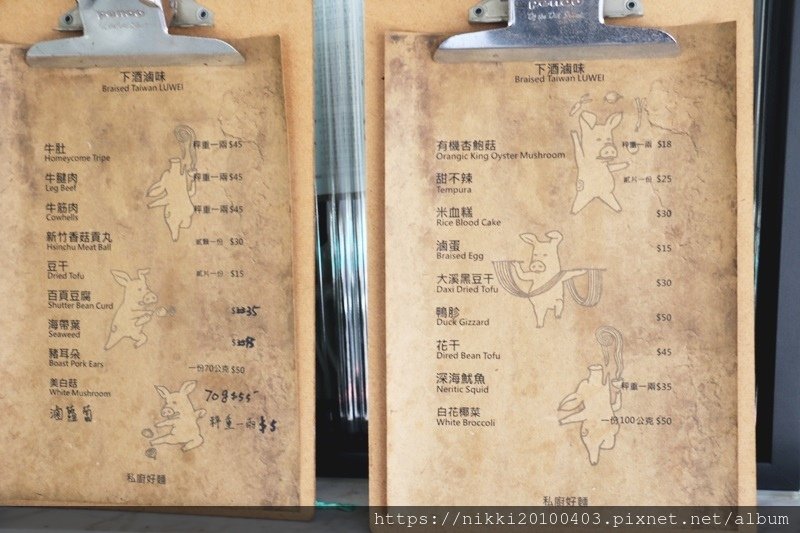 下酒滷味
Braised Taiwan LUWEI
牛肚 秤重一兩 $45
Honeycome Tripe
牛腱肉 秤重一兩 $45
Leg Beef
牛筋肉 秤重一兩 $45
Cowhells
新竹香菇貢丸 貳顆一份 $30
Hsinchu Meat Ball
豆干 貳片一份 $15
Dried Tofu
百頁豆腐 35
Shutter Bean Curd
海帶葉
Seaweed
豬耳朵 一份70公克 $50
Boast Pork Ears
美白菇 70g $55
White Mushroom
滷蘿蔔 秤重一兩 $5
私廚好麵
下酒滷味
Braised Taiwan LUWEI
有機杏鮑菇 秤重一兩 $18
Orangic King Oyster Mushroom
甜不辣 貳片一份 $25
Tempura
米血糕 $30
Rice Blood Cake
滷蛋 $15
Braised Egg
大溪黑豆干 $30
Daxi Dried Tofu
鴨胗 $50
Duck Gizzard
花干 $45
Dired Bean Tofu
深海魷魚 秤重一兩 $35
Neritic Squid
白花椰菜 一份100公克 $50
White Broccoli
私廚好麵
https://nikki20100403.pixnet.net/album